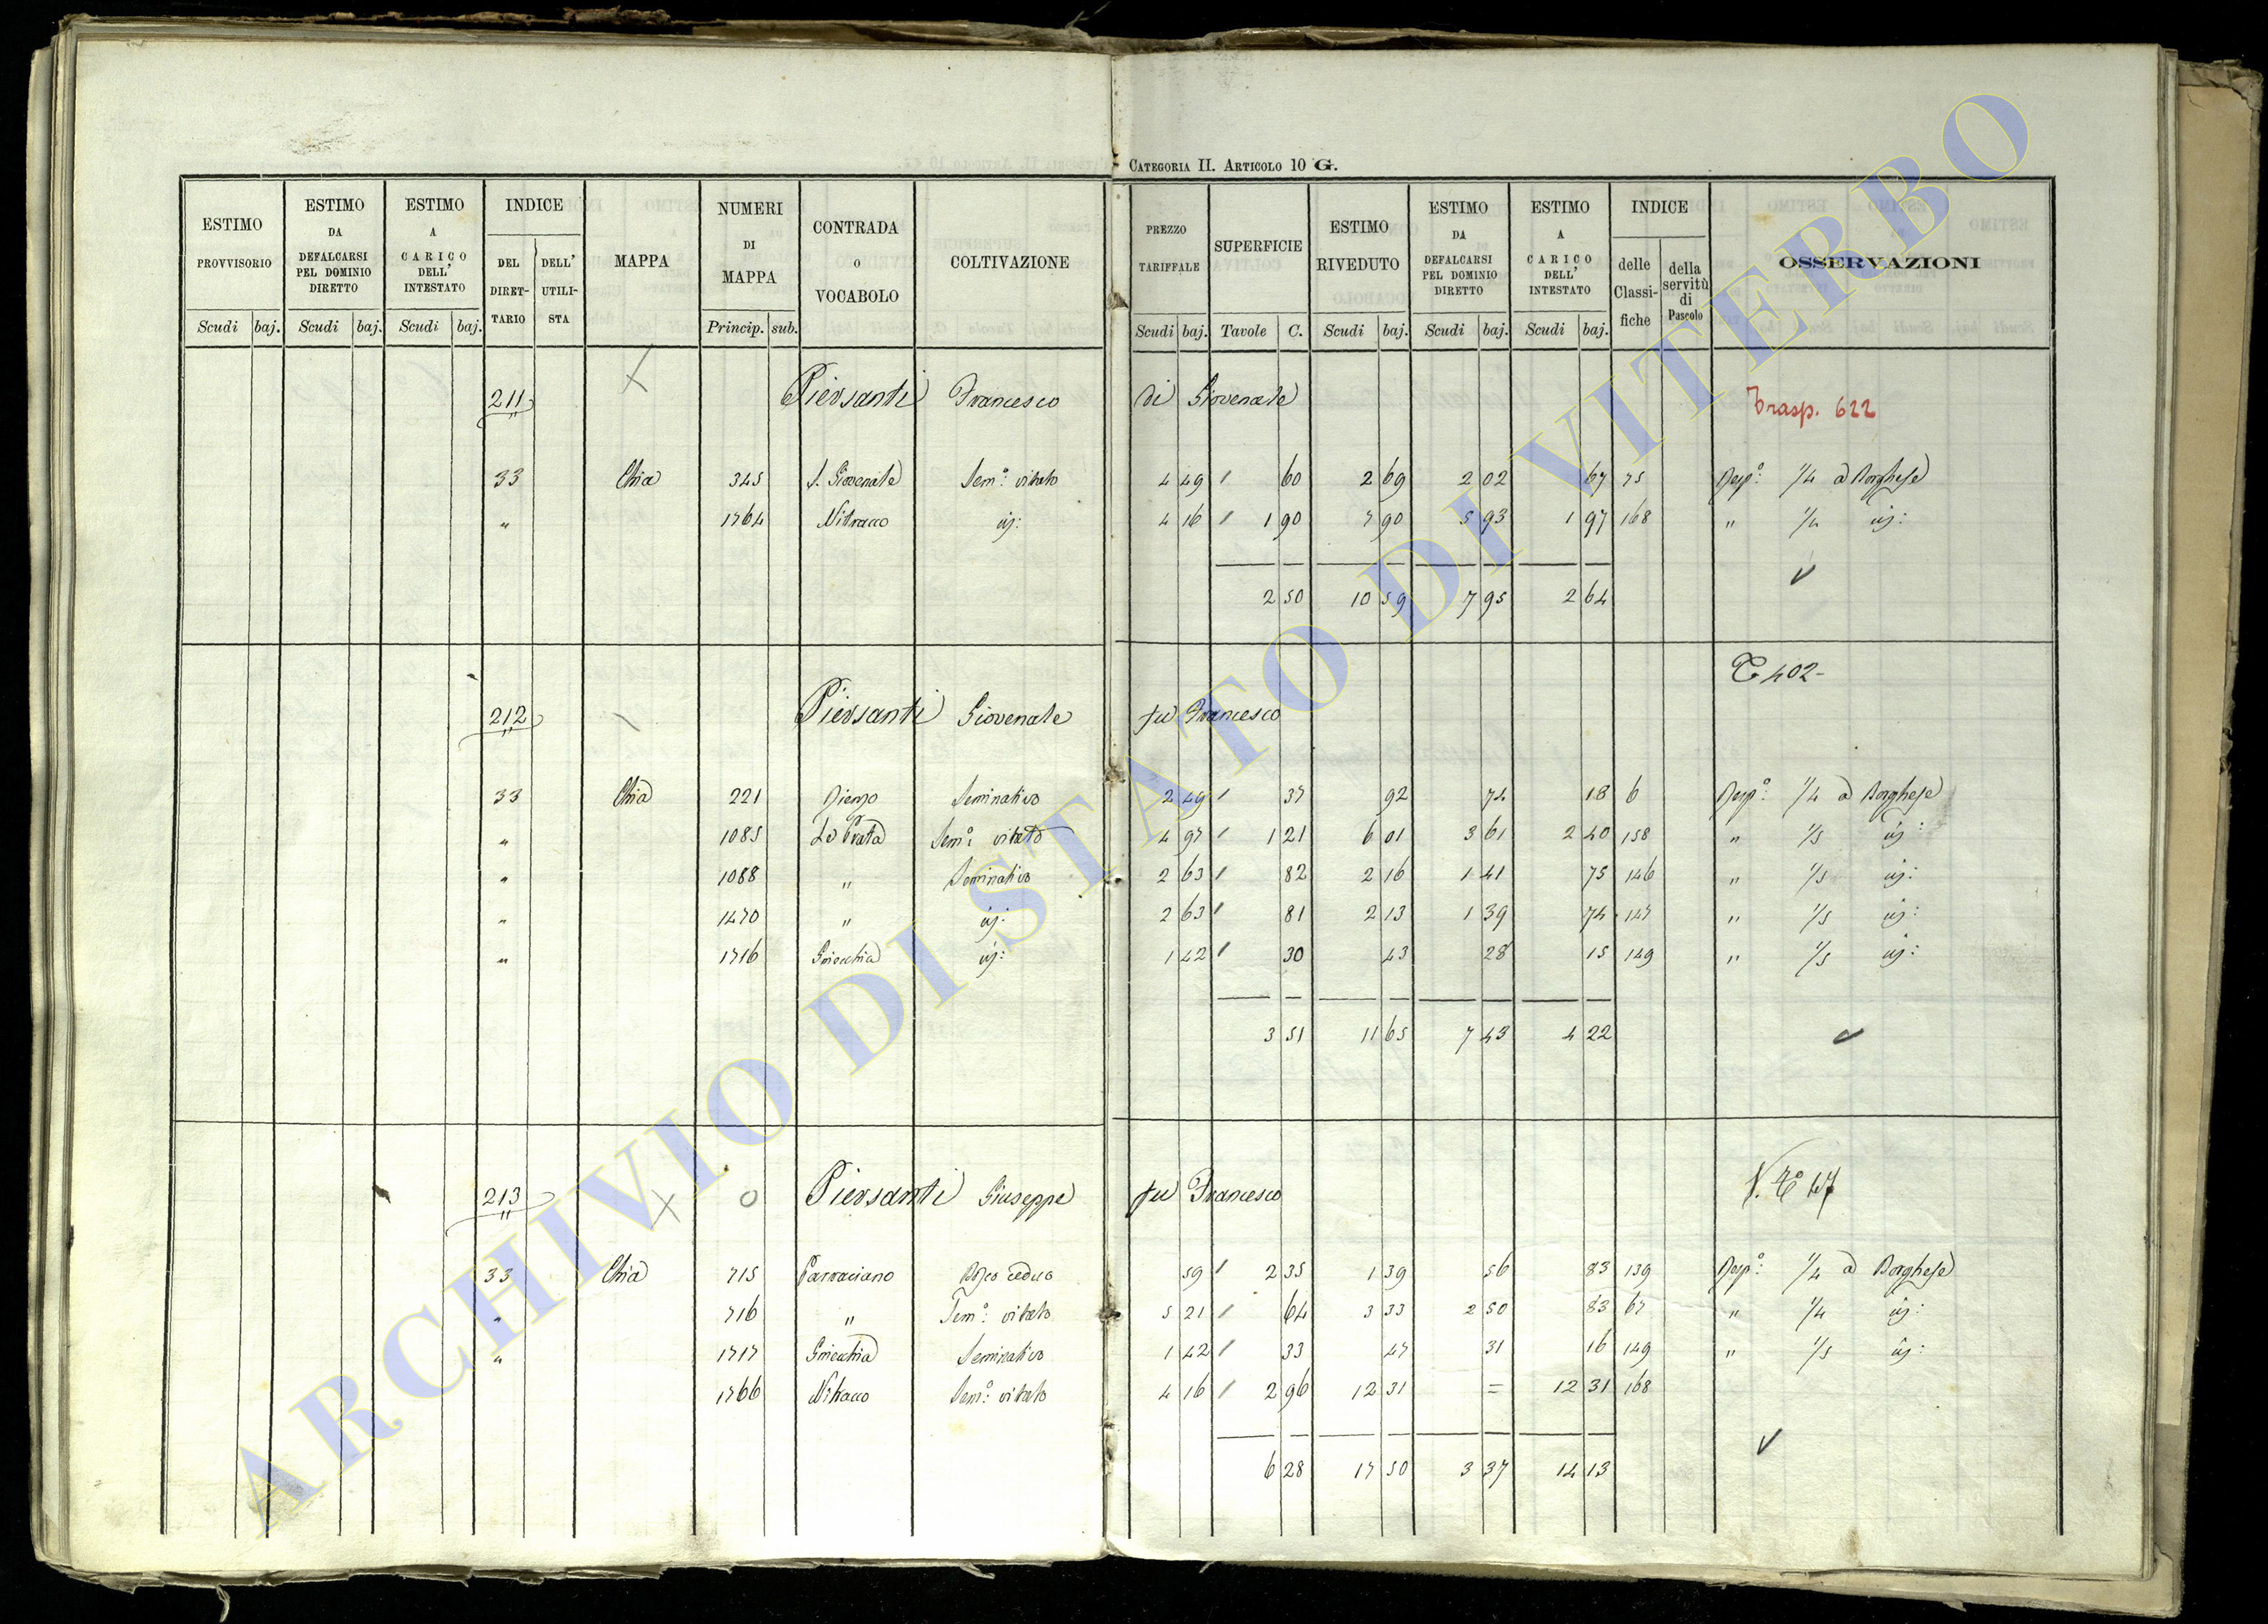 CATEGORIA II. ARTICOLO 10 G.
ESTIMO PROVVISORIO
ESTIMO DA DEFALCARSI PEL DOMINIO DIRETTO
ESTIMO A CARICO DELL' INTESTATO
INDICE
DEL DIRET-TARIO
DELL' UTILI-STA
MAPPA
NUMERI DI MAPPA
CONTRADA o VOCABOLO
COLTIVAZIONE
PREZZO TARIFFALE
SUPERFICIE
ESTIMO RIVEDUTO
ESTIMO DA DEFALCARSI PEL DOMINIO DIRETTO
ESTIMO A CARICO DELL' INTESTATO
INDICE
delle Classi-fiche
della servitù di Pascolo
OSSERVAZIONI
Scudi baj. Scudi baj. Scudi baj. Princip. sub. Scudi baj. Tavole C. Scudi baj. Scudi baj. Scudi baj.
211 Piersanti Francesco di Giovenale Trasp. 622
33 Chia 345 S. Giovenale Sem.° vitato 4 49 60 2 69 2 02 67 75 Risp.° 1/4 a Borghese
" 1764 Nitracco id: 4 16 1 90 7 90 5 93 1 97 168 " 1/4 id:
2 50 10 59 7 95 2 64
T 402-
212 Piersanti Giovenale fu Francesco
33 Chia 221 Seminativo 2 49 37 92 74 18 6 Risp.° 1/4 a Borghese
" 1085 Le Prata Sem.° vitato 4 97 1 21 6 01 3 61 2 40 158 " 1/5 id:
" 1088 " Seminativo 2 63 82 2 16 1 41 75 146 " 1/5 id:
" 1470 " id: 2 63 81 2 13 1 39 74 147 " 1/5 id:
" 1716 id: 1 42 30 43 28 15 149 " 1/5 id:
3 51 11 65 7 43 4 22
213 Piersanti Giuseppe fu Francesco
33 Chia 715 Parraciano Bosco ceduo 59 2 35 1 39 56 83 139 Risp.° 1/4 a Borghese
" 716 " Sem.° vitato 5 21 64 3 33 2 50 83 67 " 1/4 id:
" 1717 Seminativo 1 42 33 47 31 16 149 " 1/5 id:
1766 Nitracco Sem.° vitato 4 16 2 96 12 31 = 12 31 168
6 28 17 50 3 37 14 13
ARCHIVIO DI STATO DI VITERBO